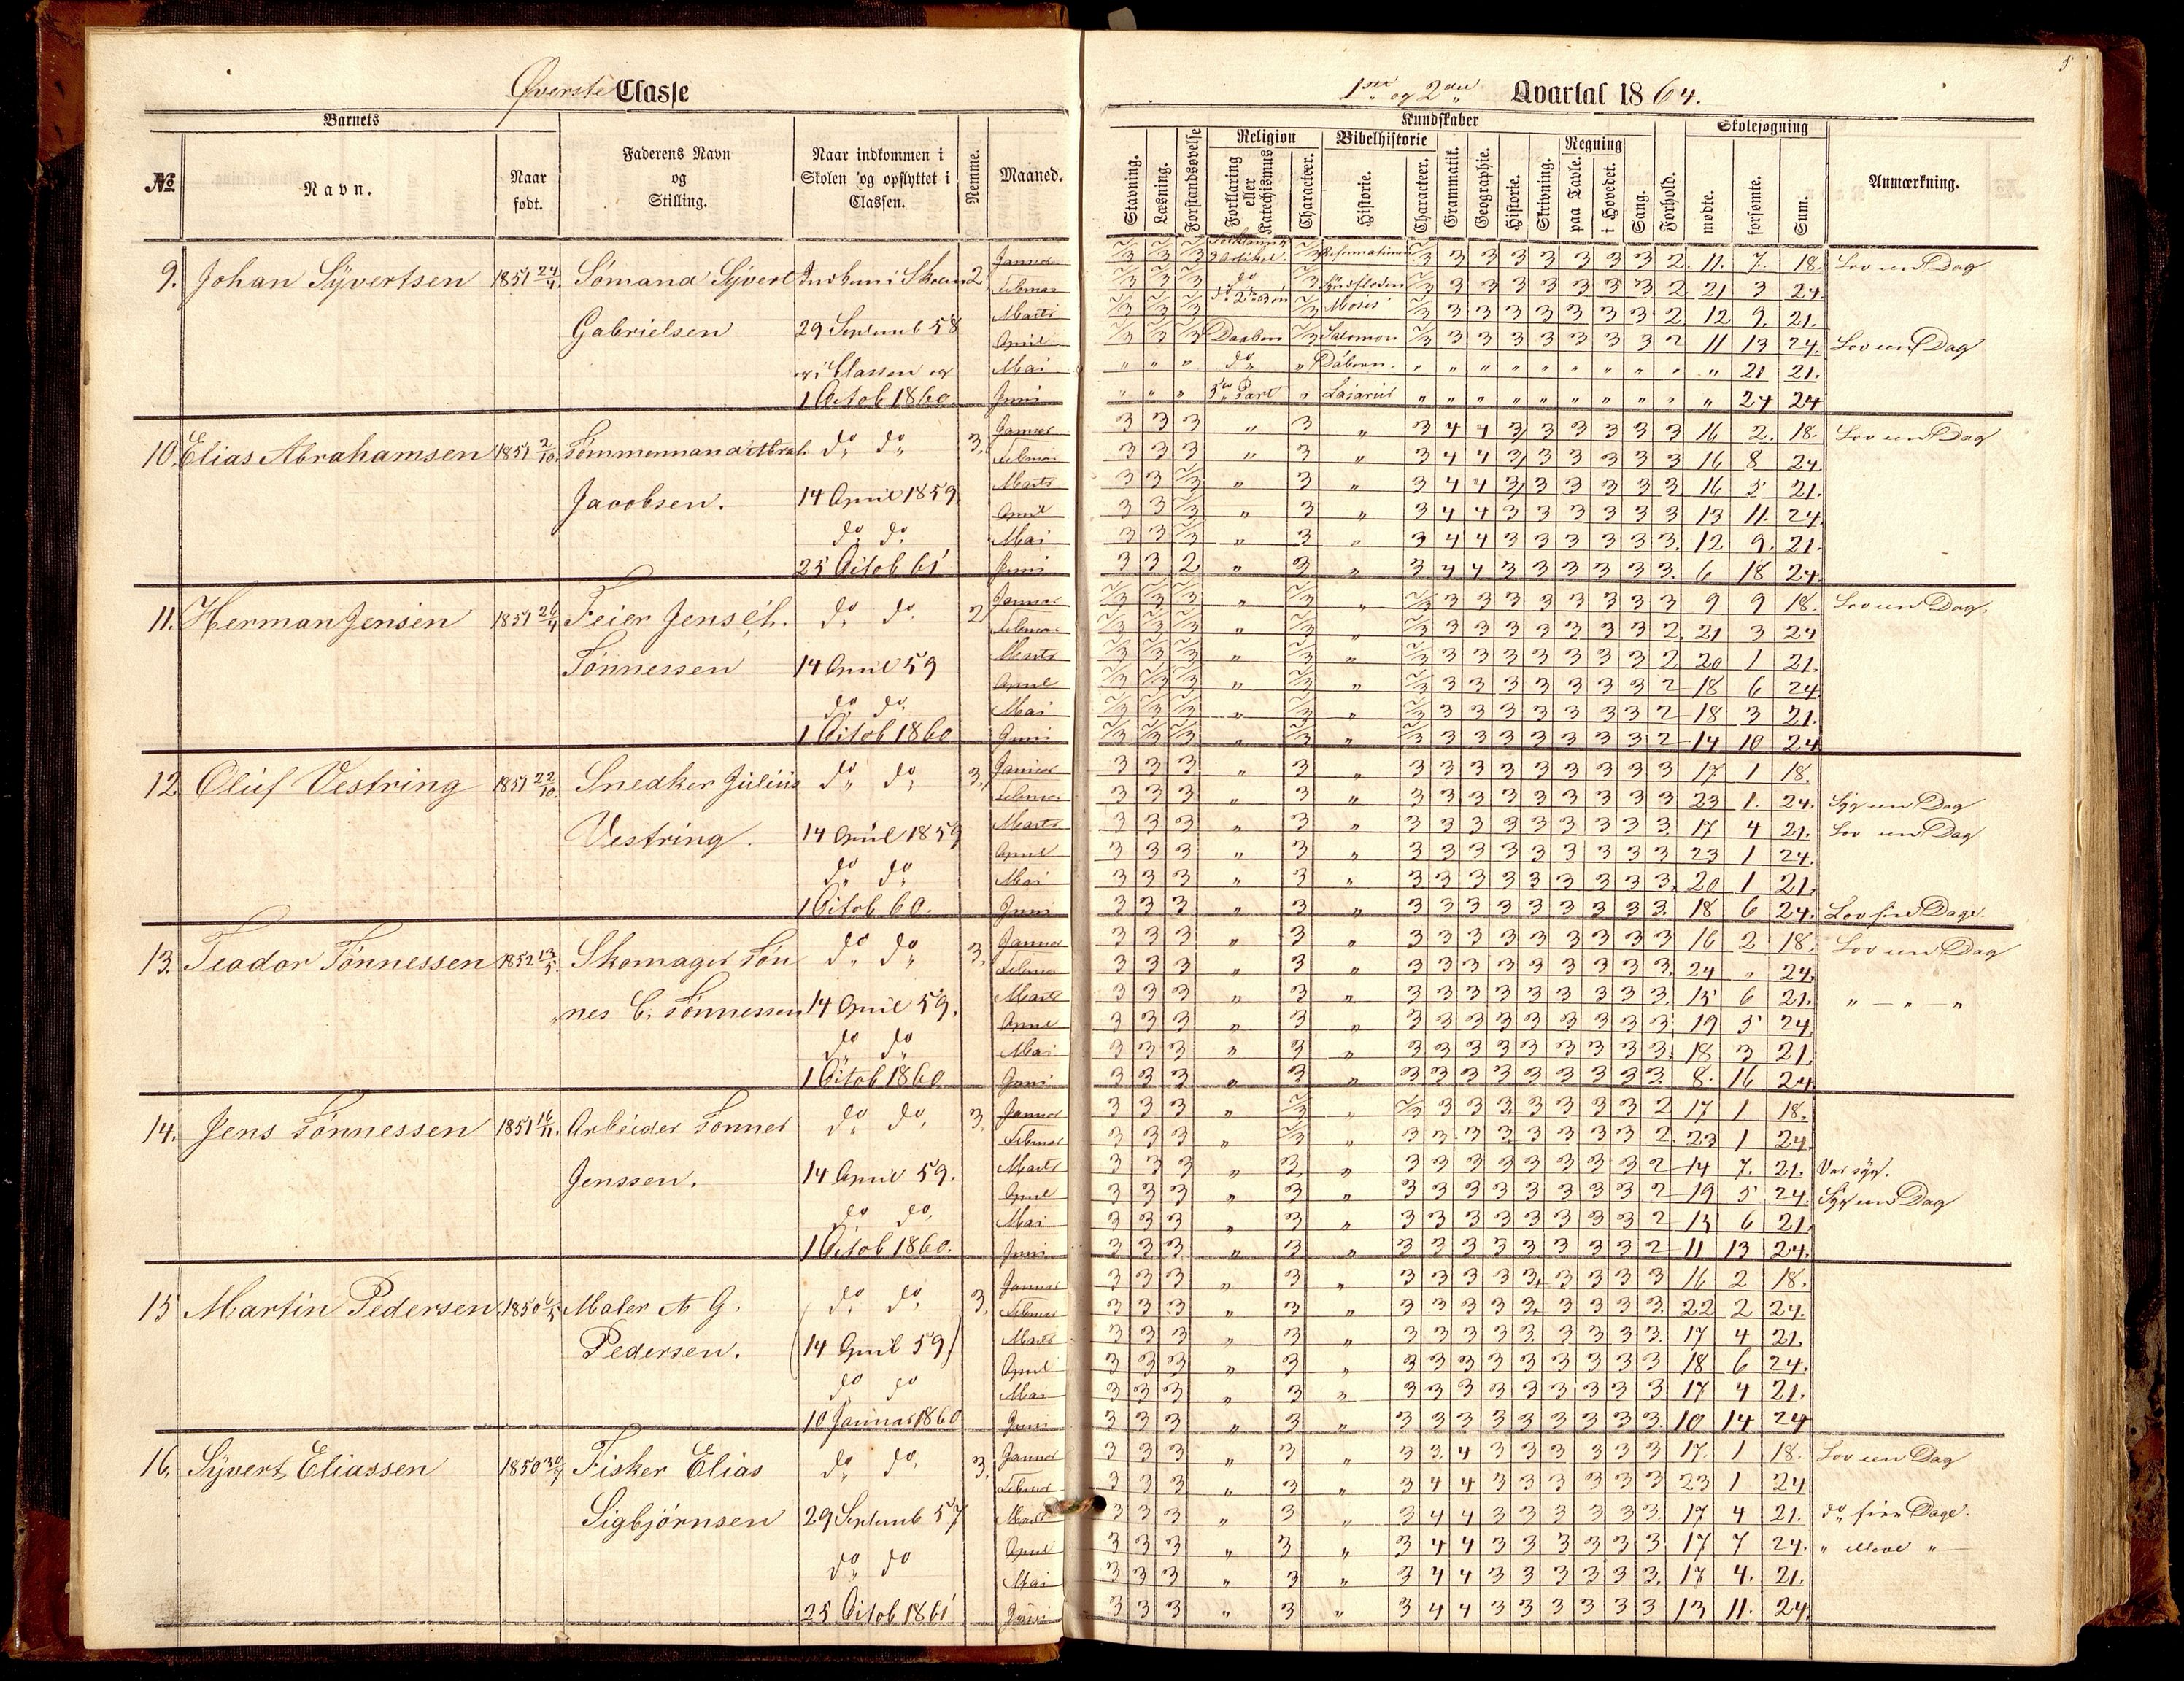 Øverste Classe
1ste og 2det Qvartal 1864.
5
Barnets
Kundskaber
Skolesøgning
№
Navn.
Naar født.
Faderens Navn og Stilling.
Naar indkommen i Skolen og opflyttet i Classen.
Nemme.
Maaned.
Stavning.
Læsning.
Forstandsøvelse
Religion
Forklaring eller Katechismus
Character.
Bibelhistorie
Historie.
Character.
Grammatik.
Geographie.
Historie.
Skrivning.
Regning
paa Tavle.
i Hovedet.
Sang.
Forhold.
mødte.
forsømte.
Sum.
Anmærkning.
9. Johan Syvertsen 1851 24/4 Sømand Syvert Indkom i Skolen 2 Januar 2/3 2/3 2/3 Forklaring 3 Artikel. 2/3 Reformationen 2/3 3 3 3 3 3 3 3 2. 11. 7. 18. Lov een Dag
Februar 2/3 2/3 2/3 do 2/3 Syndfloden 2/3 3 3 3 3 3 3 3 2 21 3 24.
Gabrielsen 29 Septemb 58 Marts 2/3 2/3 2/3 2/3 Moses 2/3 3 3 3 3 3 3 3 2 12 9. 21.
April 2/3 2/3 2/3 Daaben 2/3 Salomon 2/3 3 3 3 3 3 3 3 2 11 13 24. Lov een Dag
og i Classen Mai " " " do " " " " " " " " " " " 21 21.
1 Octob 1860. Juni " " " 5te Part " Lazarus " " " " " " " " " " 24 24
10. Elias Abrahamsen 1851 2/10. Tømmermand Abrah. do do 3. Januar 3 3 3 " 3 " 3 4 4 3 3 3 3 3 3 16 2. 18. Lov een Dag
Februar 3 3 3 " 3 " 3 4 4 3 3 3 3 3 3 16 8 24
Jacobsen. 14 April 1859. Marts 3 3 2/3 " 3 " 3 4 4 3 3 3 3 3 3 16 5 21.
April 3 3 2/3 " 3 " 3 4 4 3 3 3 3 3 3 13 11. 24.
do do. Mai 3 3 2/3 " 3 " 3 4 4 3 3 3 3 3 3. 12 9. 21.
25 Octob 61 Juni 3 3 2 " 3 " 3 4 4 3 3 3 3 3 3. 6 18 24.
11. Herman Jensen 1851 26/4 Feier Jens Ch. do do. 2 Januar 2/3 2/3 2/3 " 2/3 " 2/3 3 3 3 3 3 3 3 3 9 9 18. Lov een Dag.
Februar 2/3 2/3 2/3 " 2/3 " 2/3 3 3 3 3 3 3 3 2. 21 3 24
Tønnessen 14 April 59 Marts 2/3 2/3 2/3 " 2/3 " 2/3 3 3 3 3 3 3 3 2 20 1 21.
April 2/3 2/3 2/3 " 2/3 " 2/3 3 3 3 3 3 3 3 2 18 6 24
do do. Mai 2/3 2/3 2/3 " 2/3 " 2/3 3 3 3 3 3 3 3 2 18 3 21.
1 Octob 1860 Juni 2/3 2/3 2/3 " 2/3 " 2/3 3 3 3 3 3 3 3 2 14 10 24
12. Oluf Vestring 1851 22/10. Snedker Julius do do 3. Januar 3 3 3 " 3 " 3 3 3 3 3 3 3 3 3 17 1 18.
Februar 3 3 3 " 3 " 3 3 3 3 3 3 3 3 3 23 1. 24. Syg een Dag
Vestring. 14 April 1859 Marts 3 3 3 " 3 " 3 3 3 3 3 3 3 3 3. 17 4 21. Lov een Dag
April 3 3 3 " 3 " 3 3 3 3 3 3 3 3 3 23 1 24.
do do Mai 3 3 3 " 3 " 3 3 3 3 3 3 3 3 3. 20 1 21.
1 Octob 60. Juni 3 3 3 " 3 " 3 3 3 3 3 3 3 3 3. 18 6 24. Lov fire Dage.
13. Teodor Tønnessen 1852 13/5. Skomager Tøn do do 3. Januar 3 3 3 " 3 " 3 3 3 3 3 3 3 3 3 16 2 18. Lov een Dag
Februar 3 3 3 " 3 " 3 3 3 3 3 3 3 3 3. 24 " 24.
nes C. Tønnessen 14 April 59. Marts 3 3 3 " 3 " 3 3 3 3 3 3 3 3 3. 15 6 21. " — " — "
April 3 3 3 " 3 " 3 3 3 3 3 3 3 3 3. 19 5 24
do do Mai 3 3 3 " 3 " 3 3 3 3 3 3 3 3 3. 18 3 21
1 Octob 1860 Juni 3 3 3 " 3 " 3 3 3 3 3 3 3 3 3. 8. 16 24
14. Jens Tønnessen 1851 16/11. Arbeider Tønnes do do. 3. Januar 3 3 3 " 2/3 " 2/3 3 3 3 3 3 3 3 2 17 1 18.
Februar 3 3 3 " 2/3 " 3 3 3 3 3 3 3 3 2. 23 1 24.
Jenssen. 14 April 59. Marts 3 3 3 " 3 " 3 3 3 3 3 3 3 3 2 14 7. 21. Var syg.
April 3 3 3 " 3 " 3 3 3 3 3 3 3 3 2 19 5 24. Syg een Dag
do do. Mai 3 3 3 " 3 " 3 3 3 3 3 3 3 3 2 15 6 21.
1 Octob 1860. Juni 3 3 3 " 3 " 3 3 3 3 3 3 3 3 2 11 13 24.
15 Martin Pedersen. 1850 6/5 Maler A G. do do. 3. Januar 3 3 3 " 3 " 3 3 3 3 3 3 3 3 3 16 2 18.
Februar 3 3 3 " 3 " 3 3 3 3 3 3 3 3 3. 22 2 24.
Pedersen. (14 April 59) Marts 3 3 3 " 3 " 3 3 3 3 3 3 3 3 3. 17 4 21.
April 3 3 3 " 3 " 3 3 3 3 3 3 3 3 3 18 6 24.
do do Mai 3 3 3 " 3 " 3 3 3 3 3 3 3 3 3 17 4 21.
10 Januar 1860 Juni 3 3 3 " 3 " 3 3 3 3 3 3 3 3 3. 10 14 24
16. Syvert Eliassen 1850 30/7 Fisker Elias do do. 3. Januar 3 3 3 " 3 " 3 3 4 3 3 3 3 3 3 17. 1 18. Lov een Dag
Februar 3 3 3 " 3 " 3 4 4 3 3 3 3 3 3 23 1 24
Sigbjørnsen 29 Septemb 57 Marts 3 3 3 " 3 " 3 4 4 3 3 3 3 3 3. 17 4 21. do fire Dage.
April 3 3 3 " 3 " 3 4 4 3 3 3 3 3 3 17 7 24. " "
do do Mai 3 3 3 " 3 " 3 4 4 3 3 3 3 3 3. 17 4. 21.
25 Octob 1861 Juni 3 3 3 " 3 " 3 4 4 3 3 3 3 3 3 13 11. 24.